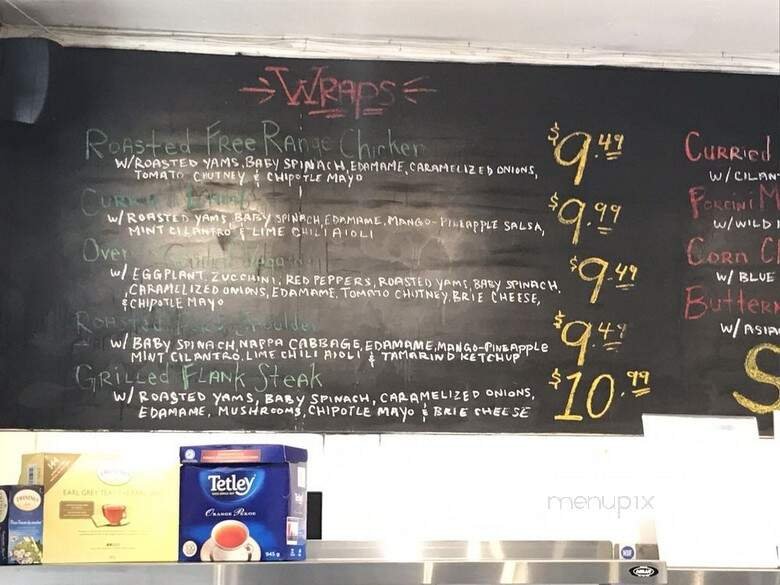 WRAPS
ROASTED FREE RANGE CHICKEN $9.49
W/ROASTED YAMS, BABY SPINACH, EDAMAME, CARAMELIZED ONIONS,
TOMATO CHUTNEY & CHIPOTLE MAYO
$9.99
W/ ROASTED YAMS BABY SPINACH, EDAMAME, MANGO-PINEAPPLE SALSA,
MINT CILANTRO & LIME CHILI AIOLI
$9.49
W/ EGGPLANT, ZUCCHINI, RED PEPPERS, ROASTED YAMS, BABY SPINACH,
CARAMELIZED ONIONS, EDAMAME, TOMATO CHUTNEY, BRIE CHEESE,
& CHIPOTLE MAYO
ROASTED PORK SHOULDER $9.49
W/ BABY SPINACH, NAPPA CABBAGE, EDAMAME, MANGO-PINEAPPLE
MINT CILANTRO, LIME CHILI AIOLI & TAMARIND KETCHUP
GRILLED FLANK STEAK $10.99
W/ ROASTED YAMS, BABY SPINACH, CARAMELIZED ONIONS,
EDAMAME, MUSHROOMS, CHIPOTLE MAYO & BRIE CHEESE
CURRIED
W/ CILAN
PORCINI M
W/ WILD
CORN C
W/ BLUE
BUTTER
W/ ASIA
S
EARL GREY TEA
TWININGS
Tetley
ORANGE PEKOE
945 g
menupix
NSF